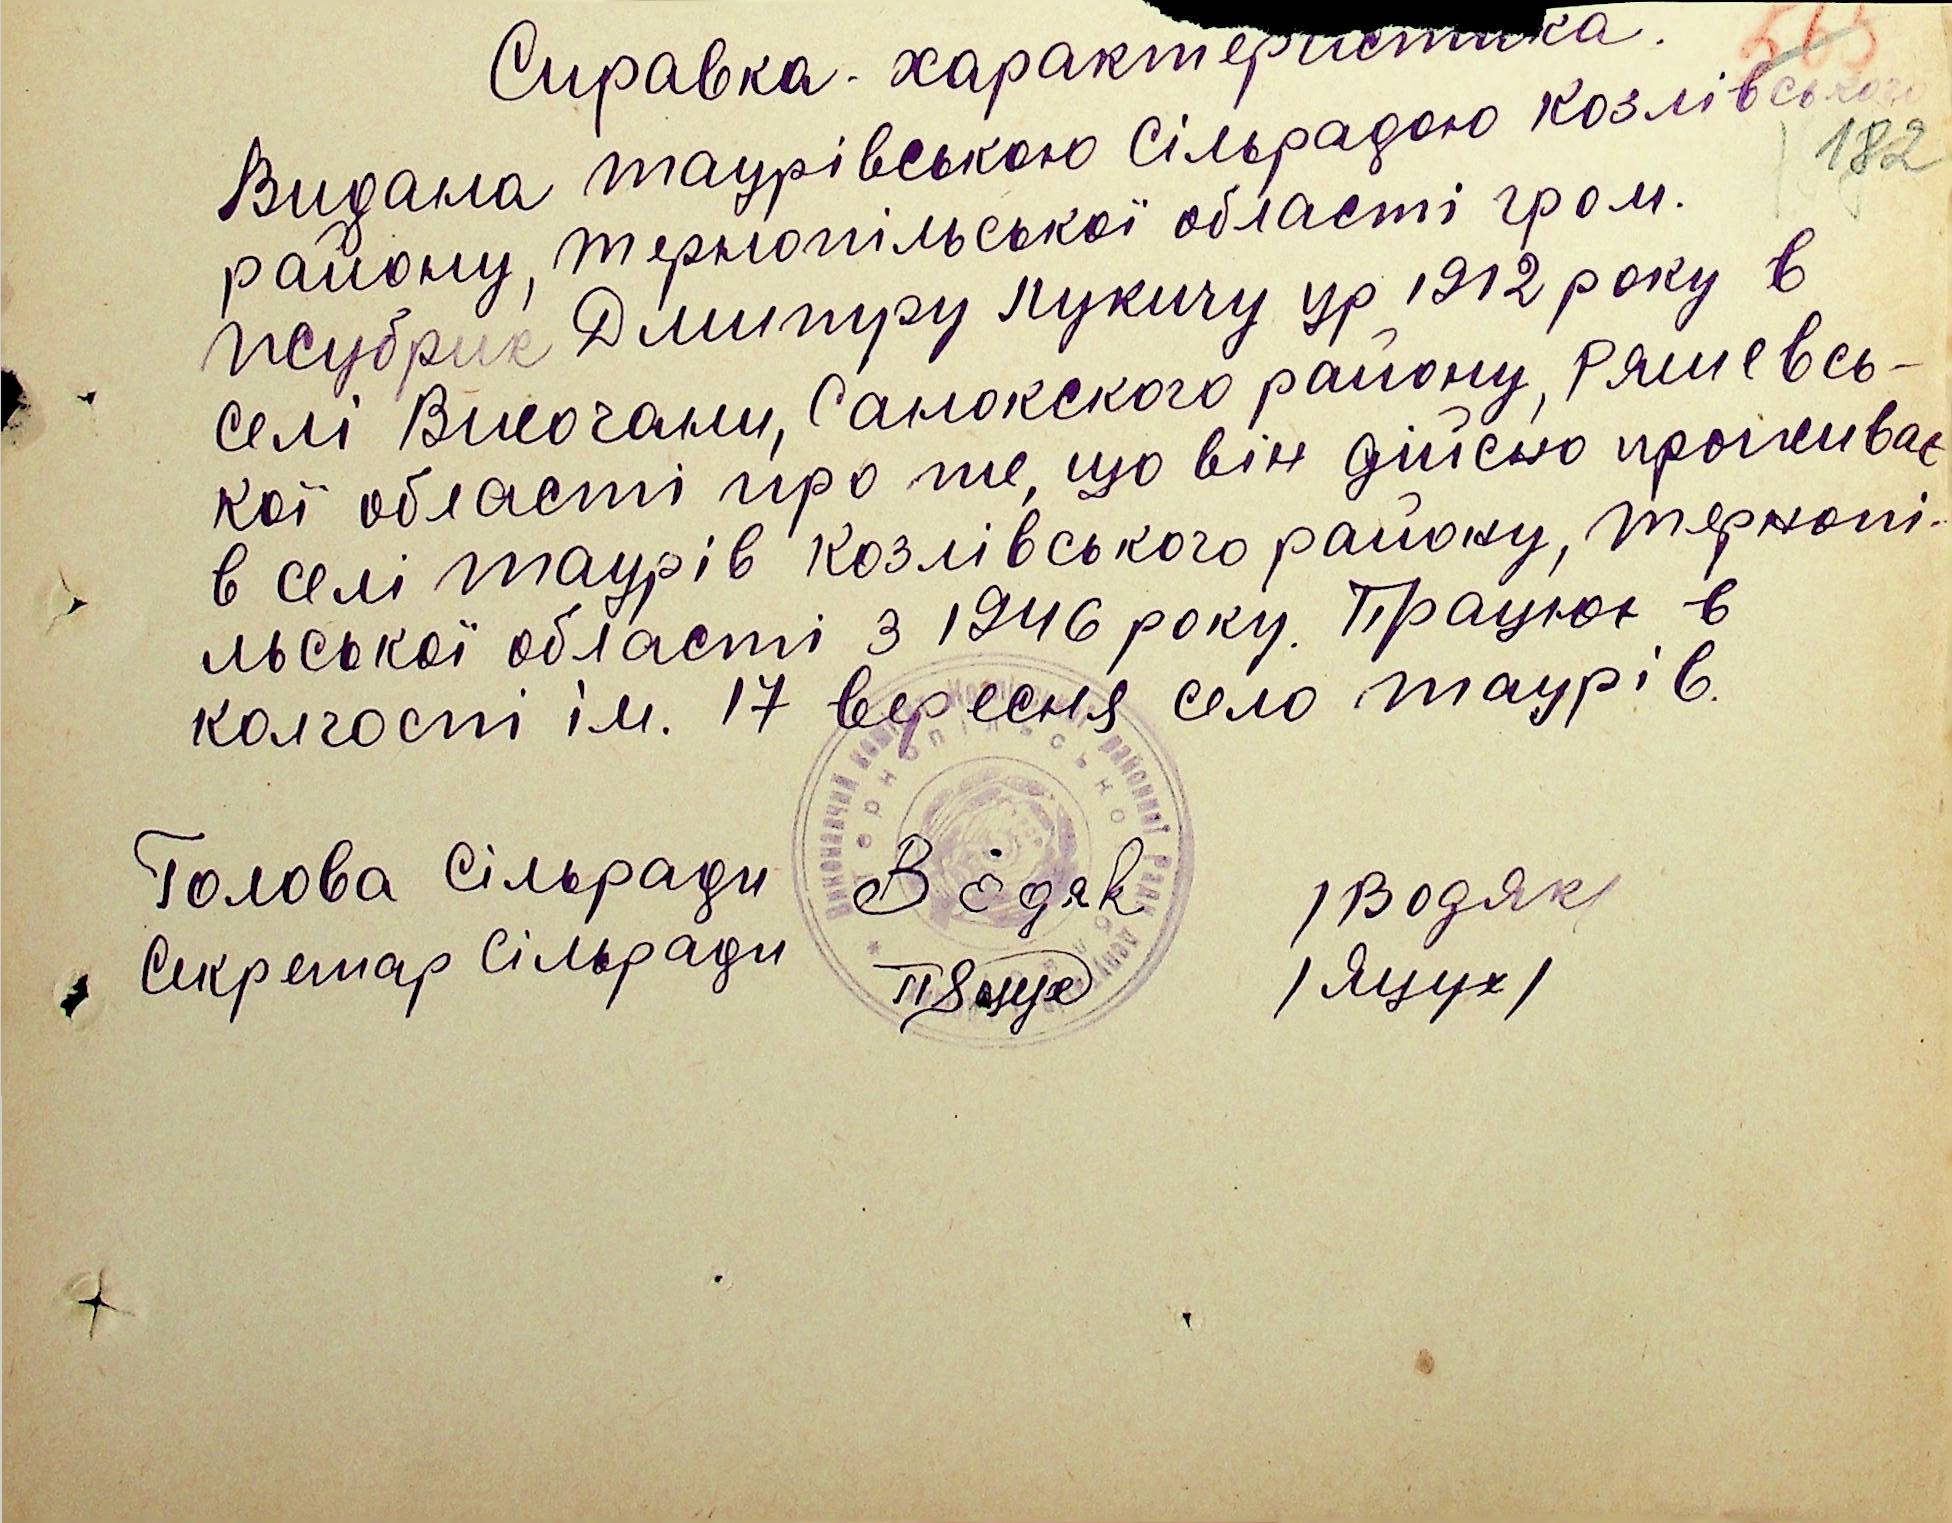 Справка-характеристика.
565
182
Видана таурівською Сільрадою Козлівського
району, тернопільської області гром.
Жубрик Дмитру Лукичу ур 1912 року в
селі Височани, Санокского району, Ряшевсь-
кої області про те, що він дійсно проживає
в селі таурів Козлівського району, тернопі-
льської області з 1946 року. Працює в
колгоспі ім. 17 вересня село таурів.
Голова Сільради Водяк /Водяк/
Секретар Сільради Яцух /Яцух/
Виконавчий районної ради